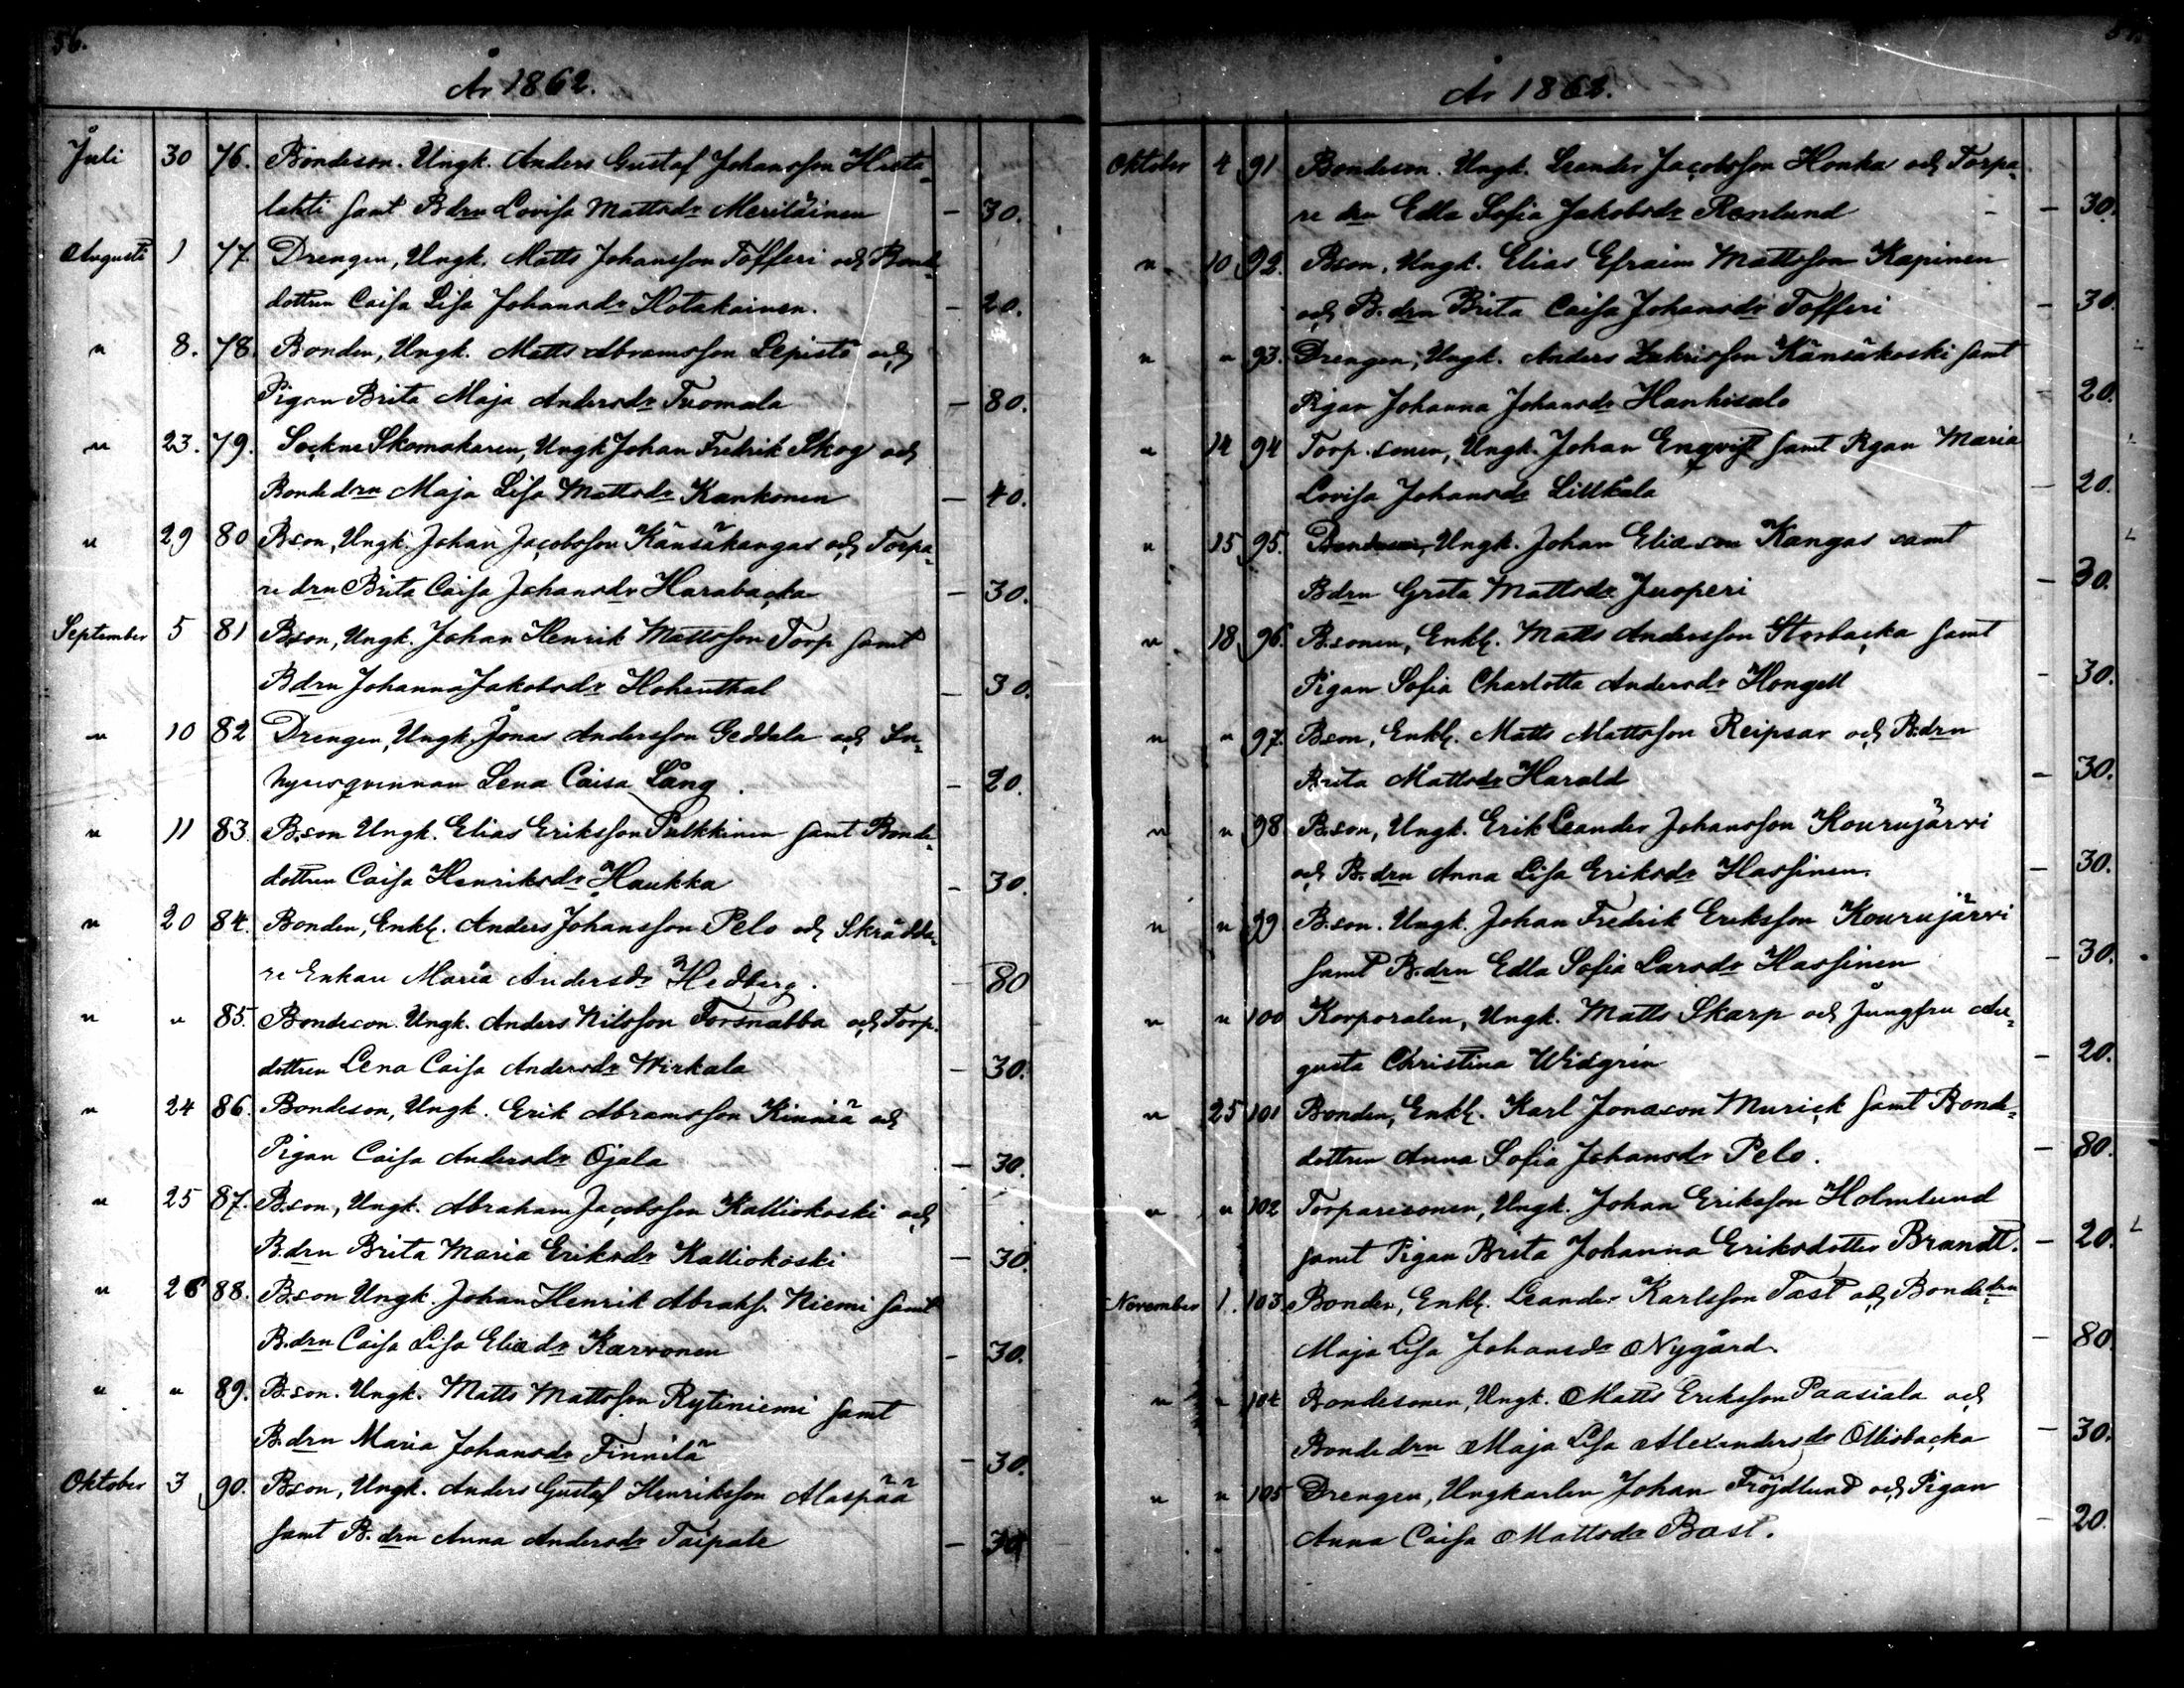 56.
År 1862.
Juli 30 76. Bondeson. Ungk. Anders Gustaf Johansson Hieta-
lahti samt Bdrn Lovisa Mattsdr Meriläinen — 30.
Augusti 1 77. Drengen, Ungk. Matts Johansson Tofferi och Bonde-
dottren Caisa Lisa Johansdr Hotakainen. — 20.
" 8. 78. Bonden, Ungk. Matts Abramsson Lepistö och
Pigan Brita Maja Andersdr Tuomala — 80.
" 23. 79. Sockne Skomakaren, Ungk Johan Fredrik Skog och
Bondedrn Maja Lisa Mattsdr Kankonen — 40.
" 29 80 Bson, Ungk. Johan Jacobsson Känsäkangas och Torpa-
re drn Brita Caisa Johansdr Harabacka — 30.
September 5 81 B.son, Ungk. Johan Henrik Mattsson Torp samt
Bdrn Johanna Jakobsdr Hohenthal — 30.
" 10 82 Drengen, Ungk. Jonas Andersson Geddala och In-
hyresqvinnan Lena Caisa Lång. — 20.
" 11 83. B.son Ungk. Elias Eriksson Pulkkinen samt Bonde-
dottren Caisa Henriksdr Haukka — 30.
" 20 84. Bonden, Enkl. Anders Johansson Pelo och Skrädda-
re Enkan Maria Andersdr Hedberg. — 80
" " 85. Bondeson. Ungk. Anders Nilsson Forsnabba och Torp.
dottren Lena Caisa Andersdr Wirkala — 30.
" 24 86. Bondeson, Ungk. Erik Abramsson Kinnia och
Pigan Caisa Andersdr Ojala — 30.
" 25 87. B.son, Ungk. Abraham Jacobsson Kalliokoski och
B.drn Brita Maria Eriksdr Kalliokoski — 30.
" 26 88. B.son Ungk. Johan Henrik Abrahs. Niemi samt
B.drn Caisa Lisa Eliædr Karvonen — 30.
" " 89. B.son. Ungk. Matts Mattsson Rytiniemi samt
B.drn Maria Johansdr Finnilä — 30.
Oktober 3 90. B.son, Ungk. Anders Gustaf Henriksson Alaspää
samt B. drn Anna Andersdr Taipale — 30
År 1862.
Oktober 4 91 Bondeson. Ungk. Leander Jacobsson Honka och Torpa-
re drn Edla Sofia Jakobsdr Renlund — 30.
" 10 92. Bson, Ungk. Elias Efraim Mattsson Kapinen
och B.drn Brita Caisa Johansdr Tofferi — 30.
" " 93. Drengen, Ungk. Anders Zakrisson Känsäkoski samt
Pigan Johanna Johansdr Hanhisalo — 20.
" 14 94 Torp.sonen, Ungk. Johan Enqvist samt Pigan Maria
Lovisa Johansdr Littkala — 20.
" 15 95. Bondeson, Ungk. Johan Eliæson Kangas samt
Bdrn Greta Mattsdr Juoperi — 30.
" 18 96. B.sonen, Enkl. Matts Andersson Storbacka samt
Pigan Sofia Charlotta Andersdr Hongell — 30.
" " 97. B.son, Enkl. Matts Mattsson Reipsar och B.drn
Brita Mattsdr Harald — 30.
" " 98 B.son, Ungk. Erik Leander Johansson Kourujärvi
och B.drn Anna Lisa Eriksdr Hassinen. — 30.
" " 99 B.son. Ungk. Johan Fredrik Eriksson Kourujärvi
samt B.drn Edla Sofia Larsdr Hassinen — 30.
" " 100 Korporalen, Ungk. Matts Skarp och Jungfru Au-
gusta Christina Widgrén — 20.
" 25 101 Bonden, Enkl. Karl Jonæson Murick samt Bonde-
dottren Anna Sofia Johansdr Pelo. — 80.
" " 102 Torparesonen, Ungk. Johan Eriksson Holmlund
samt Pigan Brita Johanna Eriksdotter Brandt. — 20.
November 1. 103 Bonden, Enkl. Leander Karlsson Tast och Bondedrn
Maja Lisa Johansdr Nygård. — 80
" " 104 Bondesonen, Ungk. Matts Eriksson Paasiala och
Bondedrn Maja Lisa Alexandersdr Ollisbacka — 30.
" " 105 Drengen, Ungkarlen Johan Fröjdlund och Pigan
Anna Caisa Mattsdr Bast. — 20.